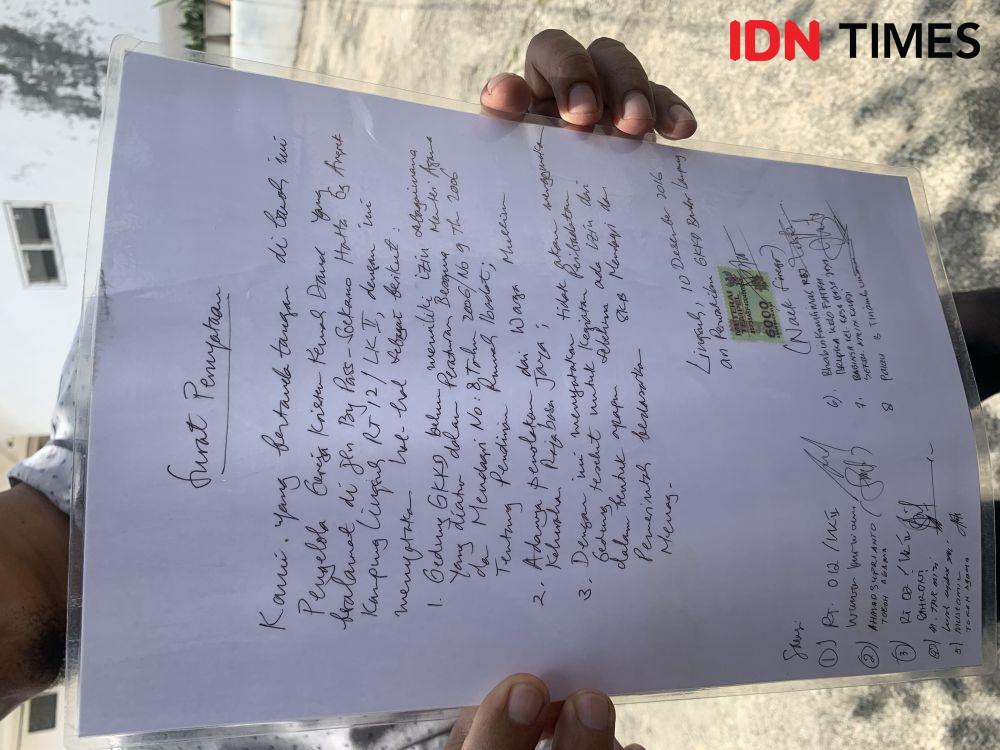 IDN TIMES
Surat Pernyataan
Kami. Yang bertanda tangan di bawah ini
Pengelola Gereja Kristen Kemah Daud yang
beralamat di Jln By Pass-Soekarno Hatta Gg Anggrek
Kampung Lingsuh RT 12 / LK II, dengan ini
menyatakan hal-hal sebagai berikut :
1. Gedung GKKD belum memiliki izin sebagaimana
yang diatur dalam Peraturan Bersama Menteri Agama
da Mendagri No: 8 Tahun 2006/No 9 Th 2006
Tentang Pendirian Rumah Ibadat,
2. Adanya penolakan dari Warga Muslim
Kelurahan Rajabasa Jaya ;
3. Dengan ini menyatakan tidak akan menggunakan
Gedung tersebut untuk kegiatan Peribadatan
dalam bentuk apapun sebelum ada izin dari
Pemerintah berdasarkan SKB Mendagri dan
Menag.
Lingsuh, 10 Desember 2016
an Perwakilan GKKD Bandar Lampung
METERAI
TEMPEL
6000
(Naek Siregar)
Saksi
1) RT. 012 / LK II
Wawan Kurniawan
(2) AHMAD SUPRIANTO
TOKOH AGAMA
(3) RT 02 / LK II
BAHRONI
(4) M. TARMIZI
5) MUSTOMIL
TOKOH AGAMA
6). BHABINKAMTIBMAS RBJ
7. BABINSA
8